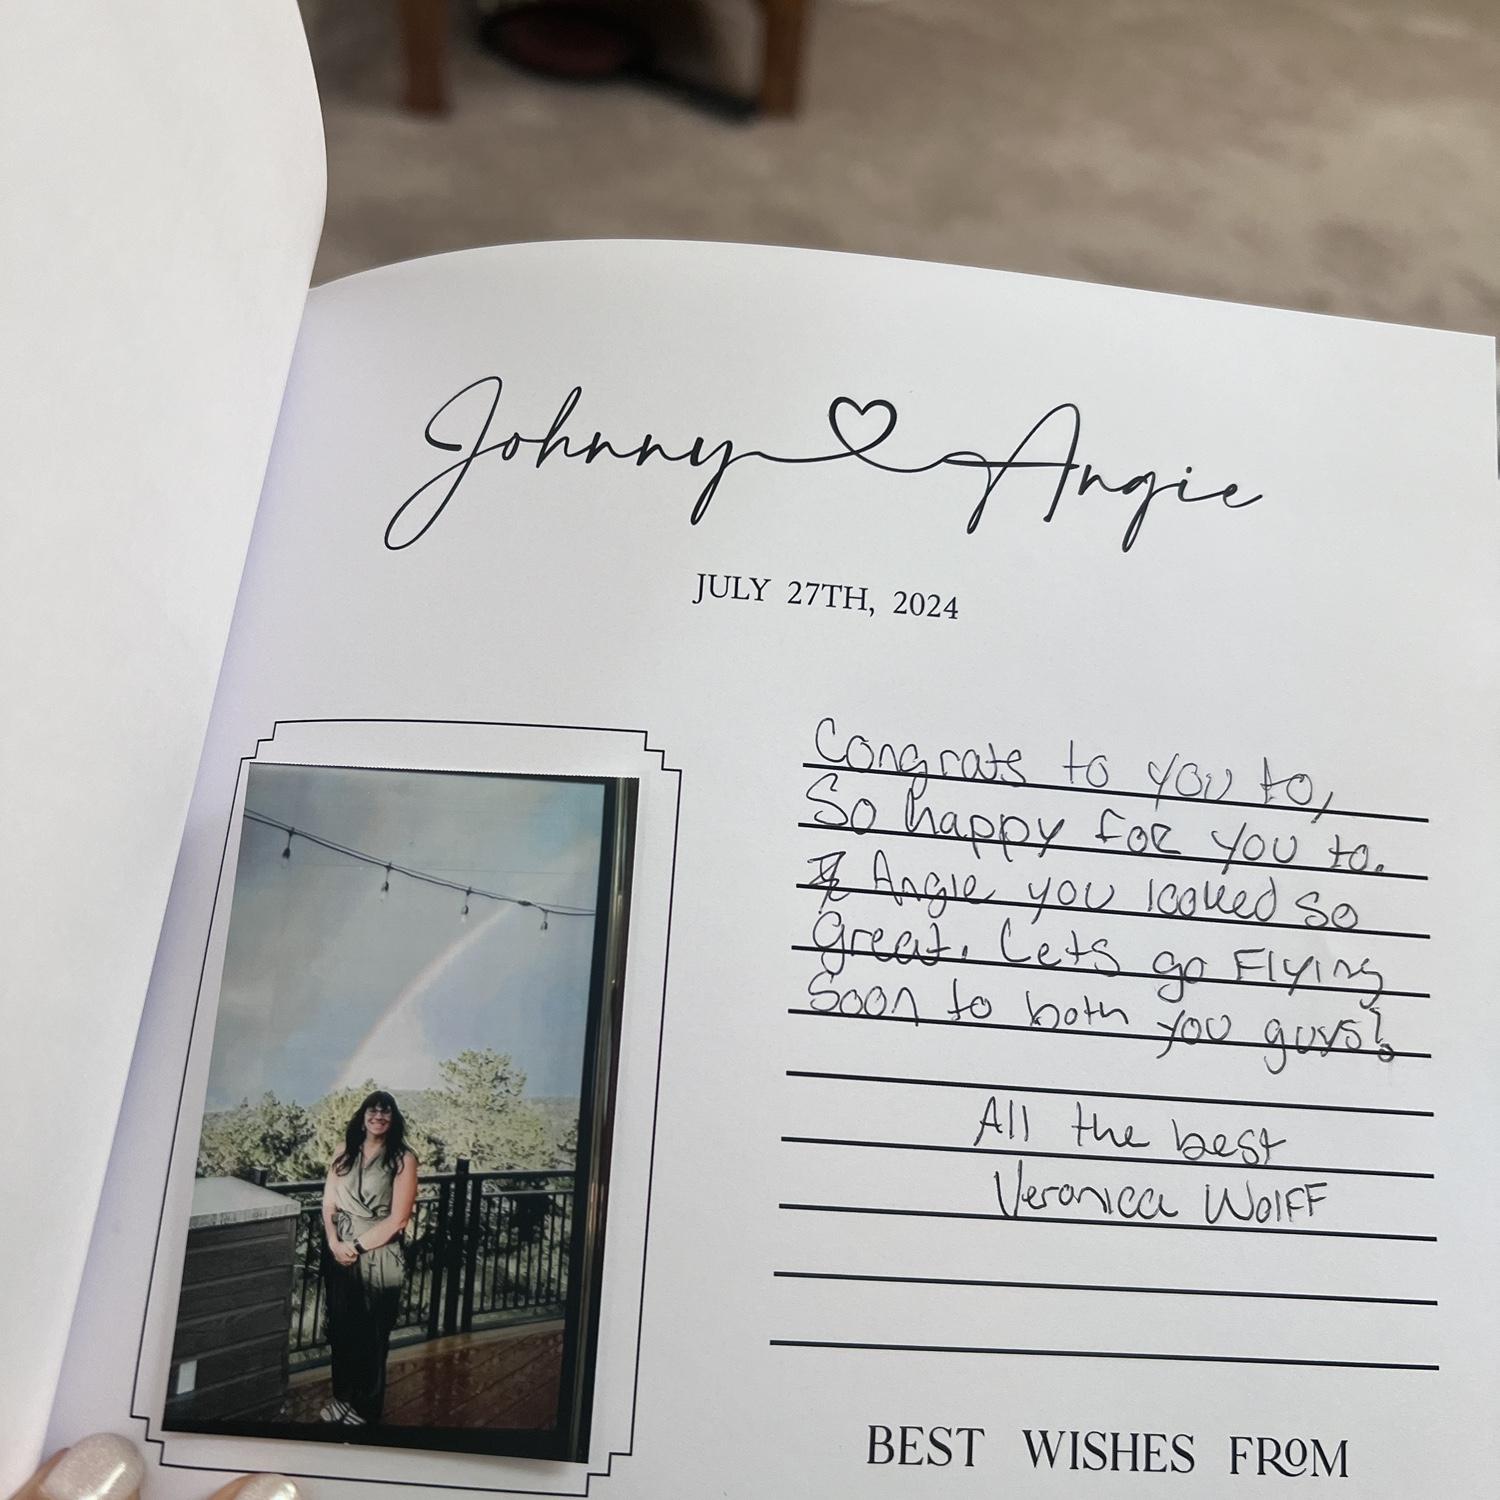 Johnny Angie
JULY 27TH, 2024
Congrats to you to,
So happy foR you to.
Angie you looked so
great. Lets go Flying
Soon to both you guys!
All the best
Veronica WolFF
BEST WISHES FROM